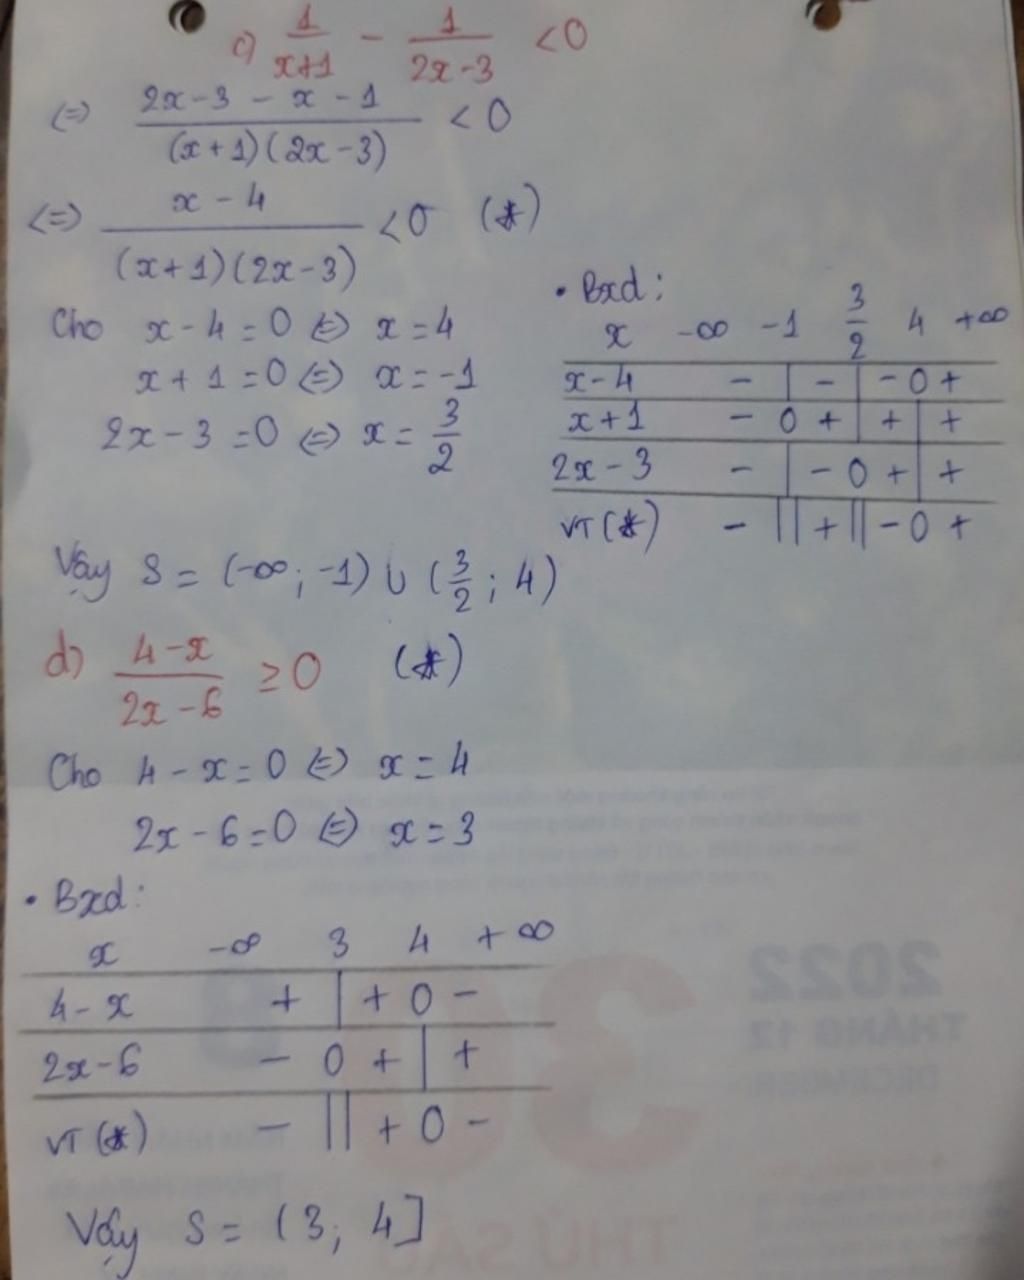 c) 1/(x+1) - 1/(2x-3) <0
<=> (2x-3 - x - 1)/((x+1)(2x-3)) <0
<=> (x - 4)/((x+1)(2x-3)) <0 (*)
Cho x-4=0 <=> x=4
x+1=0 <=> x=-1
2x-3=0 <=> x= 3/2
• Bxd:
x -∞ -1 3/2 4 +∞
x-4 - | - | - 0 +
x+1 - 0 + | + | +
2x-3 - | - 0 + | +
VT(*) - || + || - 0 +
Vậy S = (-∞; -1) ∪ (3/2; 4)
d) (4-x)/(2x-6) ≥0 (*)
Cho 4-x=0 <=> x=4
2x-6=0 <=> x=3
• Bxd:
x -∞ 3 4 +∞
4-x + | + 0 -
2x-6 - 0 + | +
VT(*) - || + 0 -
Vậy S = (3; 4]
2022
THÁNG 12
DECEMBER
30
THỨ SÁU